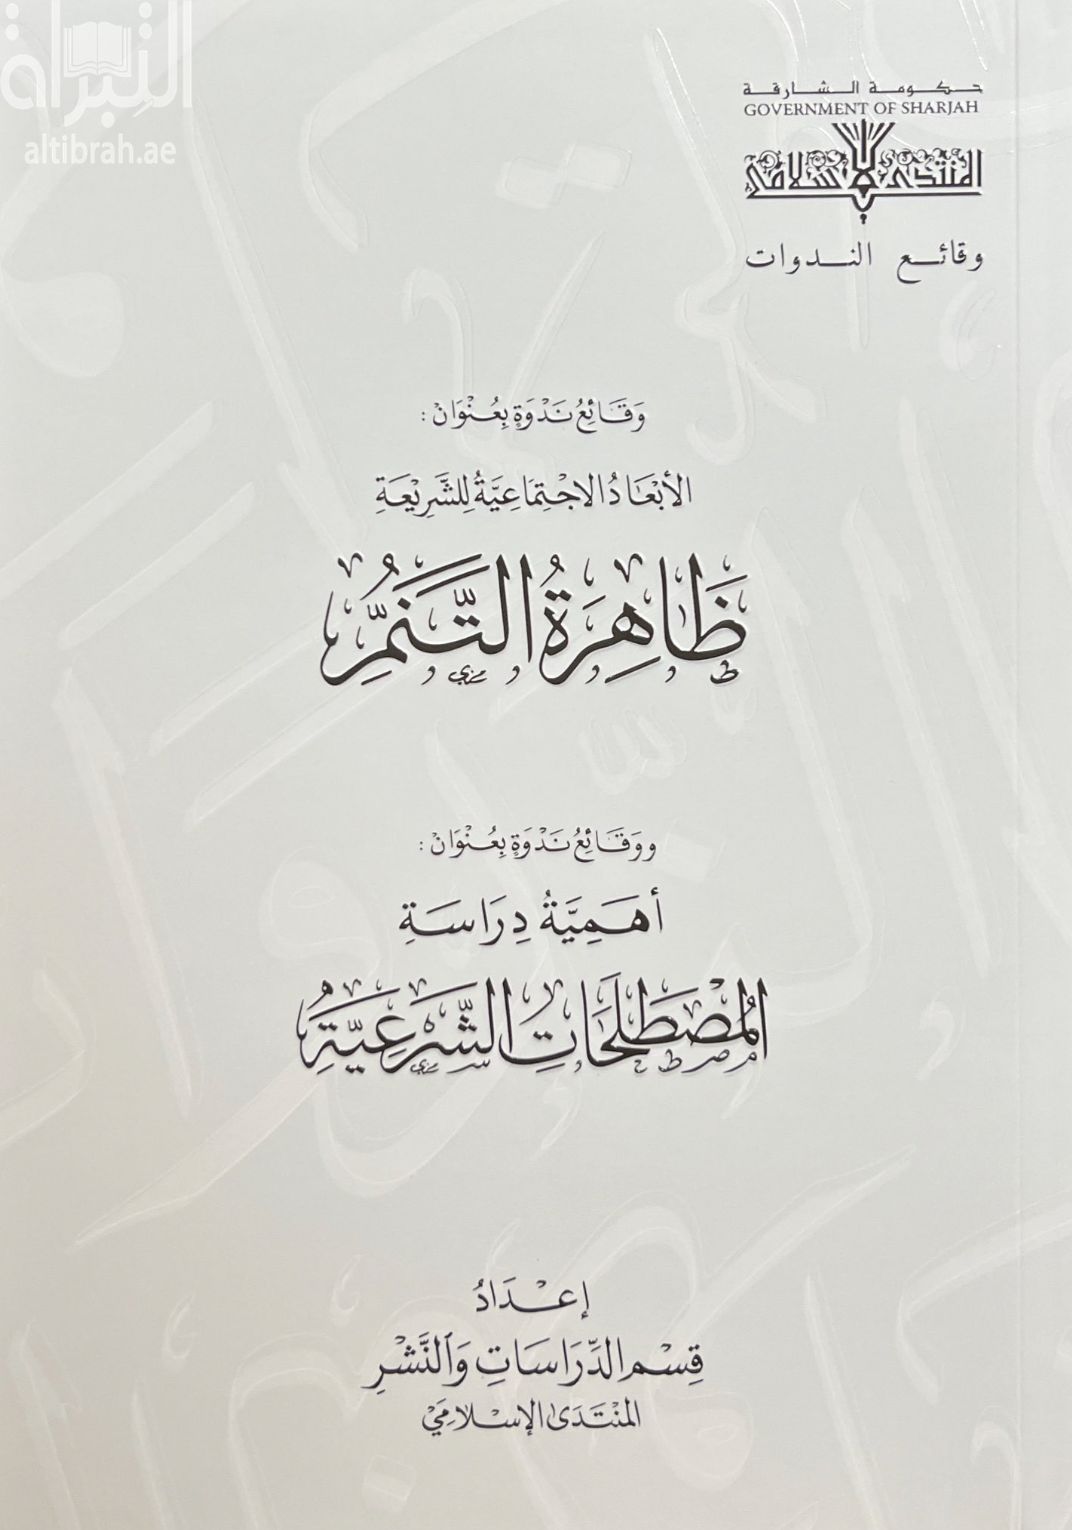 التبراة
altibrah.ae
حكومة الشارقة
GOVERNMENT OF SHARJAH
المنتدى الإسلامي
وقائع الندوات
وَقَائِعُ نَدْوَةٍ بِعُنْوَانْ :
الأَبْعَادُ الاجْتِمَاعِيَّةُ لِلشَّرِيْعَةِ
ظَاهِرَةُ التَّنَمُّرِ
ووَقَائِعُ نَدْوَةٍ بِعُنْوَانْ :
أهَمِيَّةُ دِرَاسَةِ
المُصْطَلَحَاتِ الشَّرْعِيَّةِ
إعْدَادُ
قِسْم الدِّرَاسَاتِ وَالنَّشْرِ
المُنْتَدَى الإسْلَامِيّ